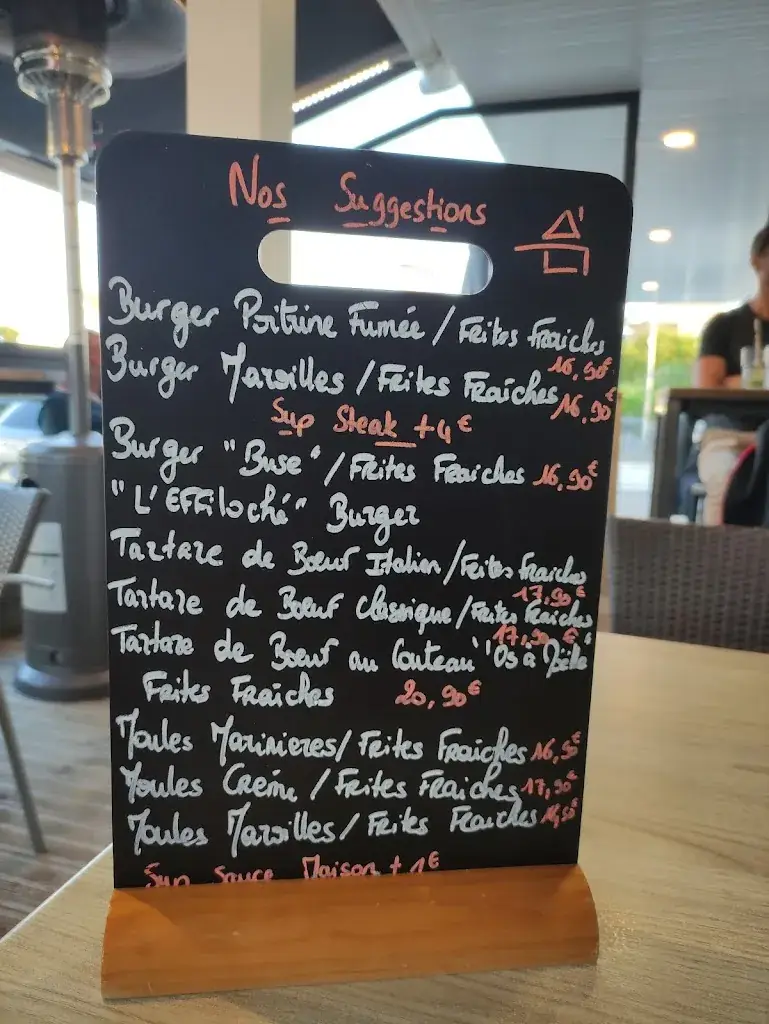 Nos Suggestions
Burger Poitrine Fumée / Frites Fraiches
16,90€
Burger Maroilles / Frites Fraiches 16,90€
Sup Steak +4€
Burger "Buse" / Frites Fraiches 16,90€
"L'Effiloché" Burger
Tartare de Bœuf Italien / Frites Fraiches
17,90€
Tartare de Bœuf Classique / Frites Fraiches
17,90€
Tartare de Bœuf au Couteau "Os à Moëlle"
Frites Fraiches 20,90€
Moules Marinieres / Frites Fraiches 16,50€
Moules Crème / Frites Fraiches 17,50€
Moules Maroilles / Frites Fraiches
Sup Sauce Maison + 1€